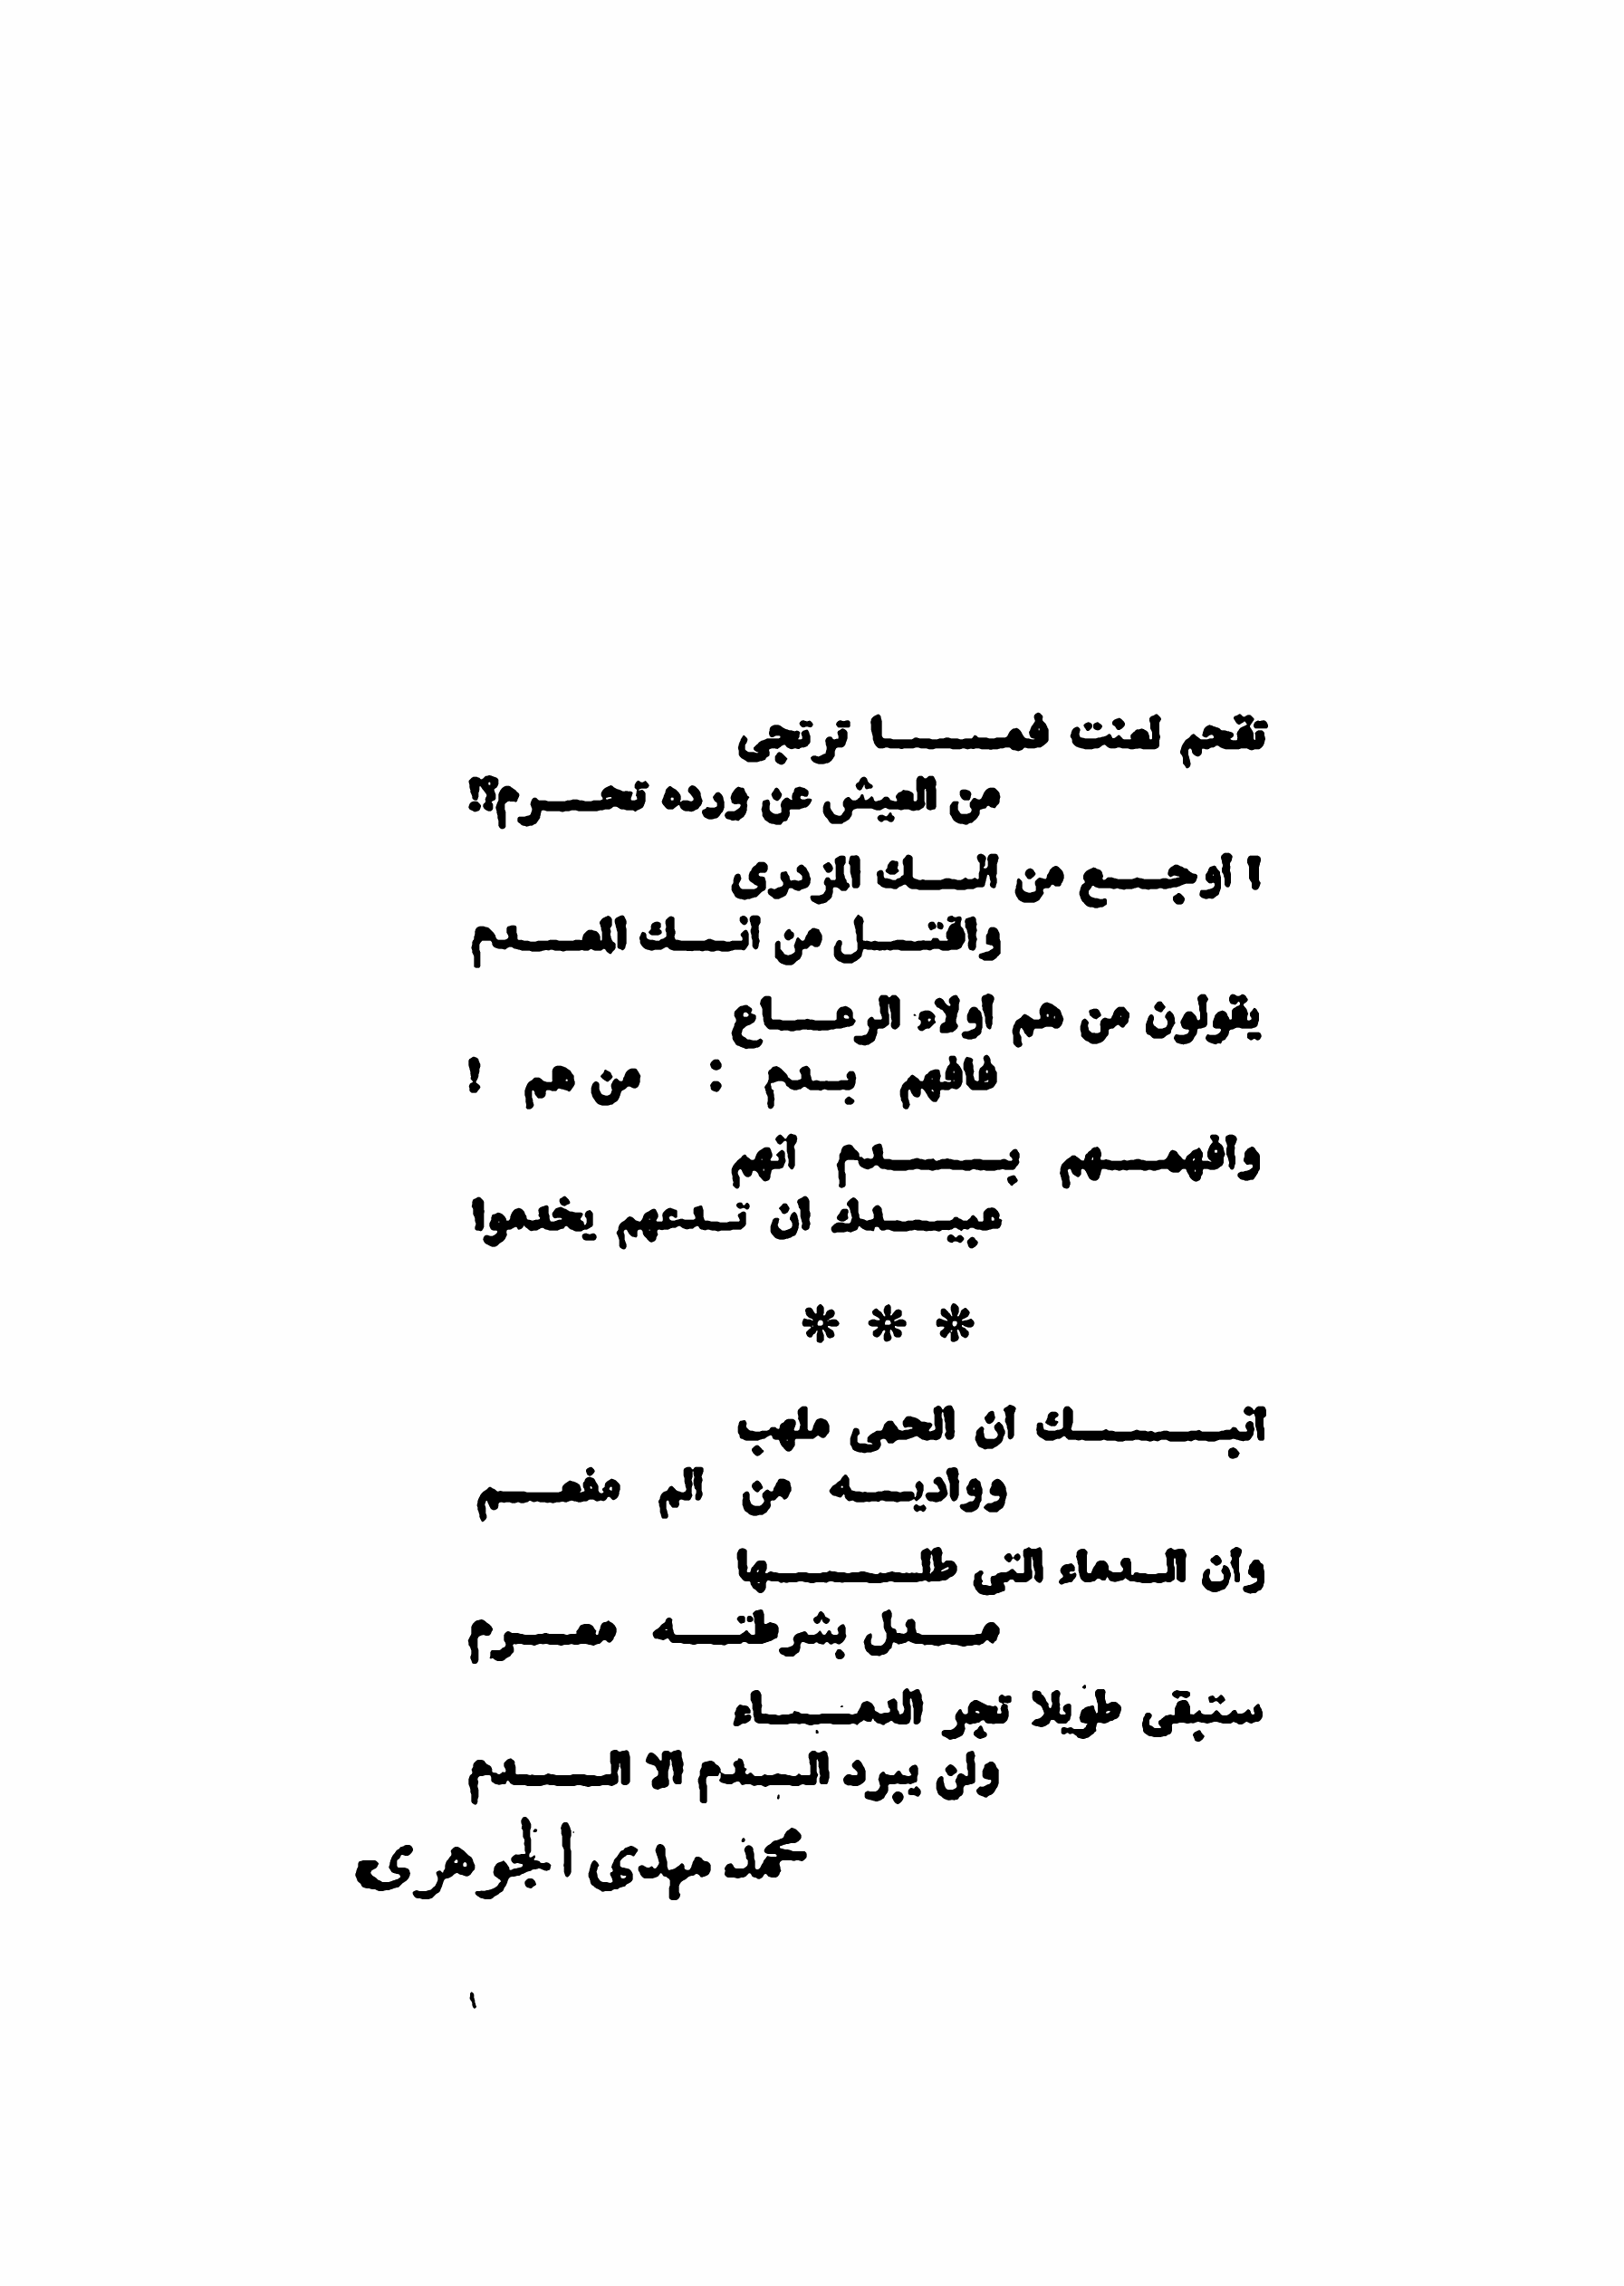 تقحم لعنت فمــا ترتجى
من العيش عن ورده تحــرم؟!
ا اوجــع من انــك المزدرى
واقتــل من انــك المعــدم
يقولون من هم اولاء الرعــاع
فافهم بــدم : من هم !
وافهمــهم بــدم انهم
عبيــدك ان تــدعهم يخدموا
* * *
انبــك ان الحمى ملهب
وواديــه من الم مفعــم
وان الــدماء التي طلــها
مــدل بشرطتــه معــرم
ستبقى طويلا تجر الدمــاء
ولن يبرد الــدم الا الــدم
محمد مهدى الجوهرى